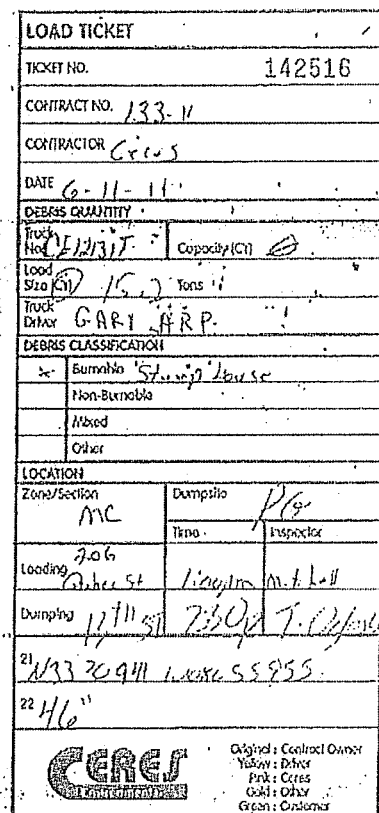 LOAD TICKET
TICKET NO. 142516
CONTRACT NO. 133-11
CONTRACTOR Ceres
DATE 6-11-11
DEBRIS QUANTITY
Truck No. CE12131T Capacity (CY)
Load Size (CY) 15.2 Tons
Truck Driver GARY ARP.
DEBRIS CLASSIFICATION
Burnable Stump
Non-Burnable
Mixed
Other
LOCATION
Zone/Section MC Dumpsite
Time Inspector
Loading 206 St
Dumping 17th St 730p T.
21 N33 20941
22 46"
CERES
Environmental
Original : Contract Owner
Yellow : Driver
Pink : Ceres
Gold : Other
Green : Customer